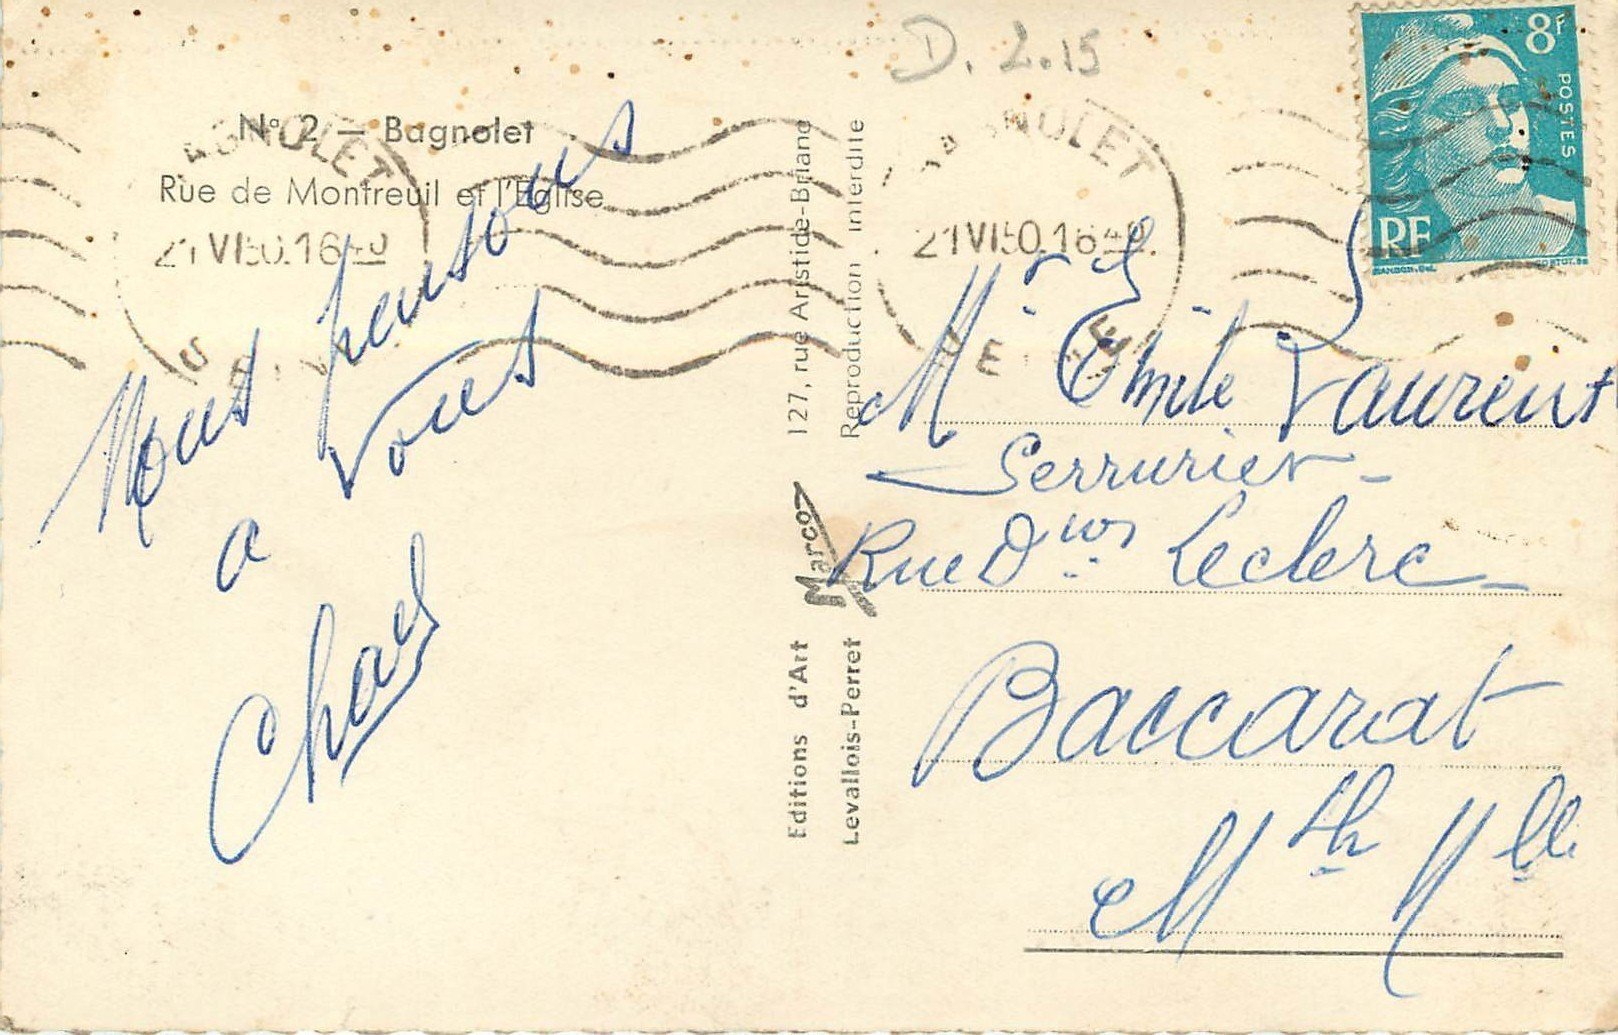 D. 2.15
N° 2 — Bagnolet
Rue de Montreuil et l'Eglise
BAGNOLET
21 VI 50. 16 40
SEINE
Nous pensons
a vous
Editions d'Art Marco 127, rue Aristide-Briand
Levallois-Perret Reproduction interdite
8F
POSTES
RF
BAGNOLET
21 VI 50. 16 40
SEINE
Mr Emile Laurent
Serrurier -
Rue Dion Leclerc -
Baccarat
Mth Mlle